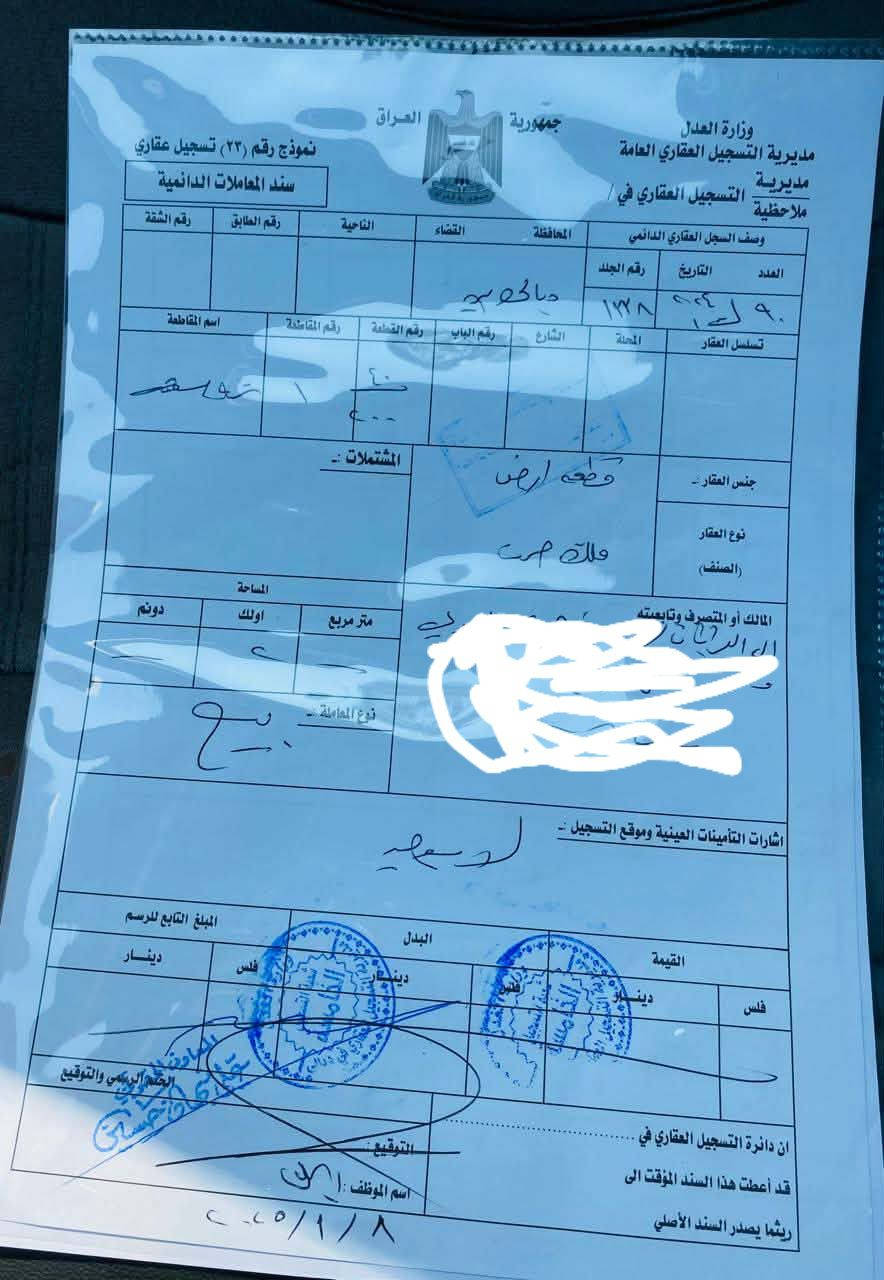 جمهورية العراق
وزارة العدل
مديرية التسجيل العقاري العامة
مديرية
ملاحظية
التسجيل العقاري في /
نموذج رقم (٢٣) تسجيل عقاري
سند المعاملات الدائمية
وصف السجل العقاري الدائمي
المحافظة
القضاء
الناحية
رقم الطابق
رقم الشقة
العدد
التاريخ
رقم الجلد
٩٠
٢٠٢٤
ديالى
تسلسل العقار
المحلة
الشارع
رقم الباب
رقم القطعة
رقم المقاطعة
اسم المقاطعة
٤٠
٢٠٠
١
جنس العقار :ـ
قطعه ارض
المشتملات :ـ
نوع العقار
(الصنف)
ملك صرف
المالك أو المتصرف وتابعيته
المساحة
متر مربع
اولك
دونم
٢
نوع المعاملة :ـ
بيع
اشارات التأمينات العينية وموقع التسجيل :ـ
لا يوجد
القيمة
البدل
المبلغ التابع للرسم
فلس
دينـار
فلس
دينـار
فلس
دينـار
الختم الرسمي والتوقيع
ان دائرة التسجيل العقاري في
قد أعطت هذا السند المؤقت الى
ريثما يصدر السند الأصلي
التوقيع :
اسم الموظف :
٢٠٢٥/١/٨